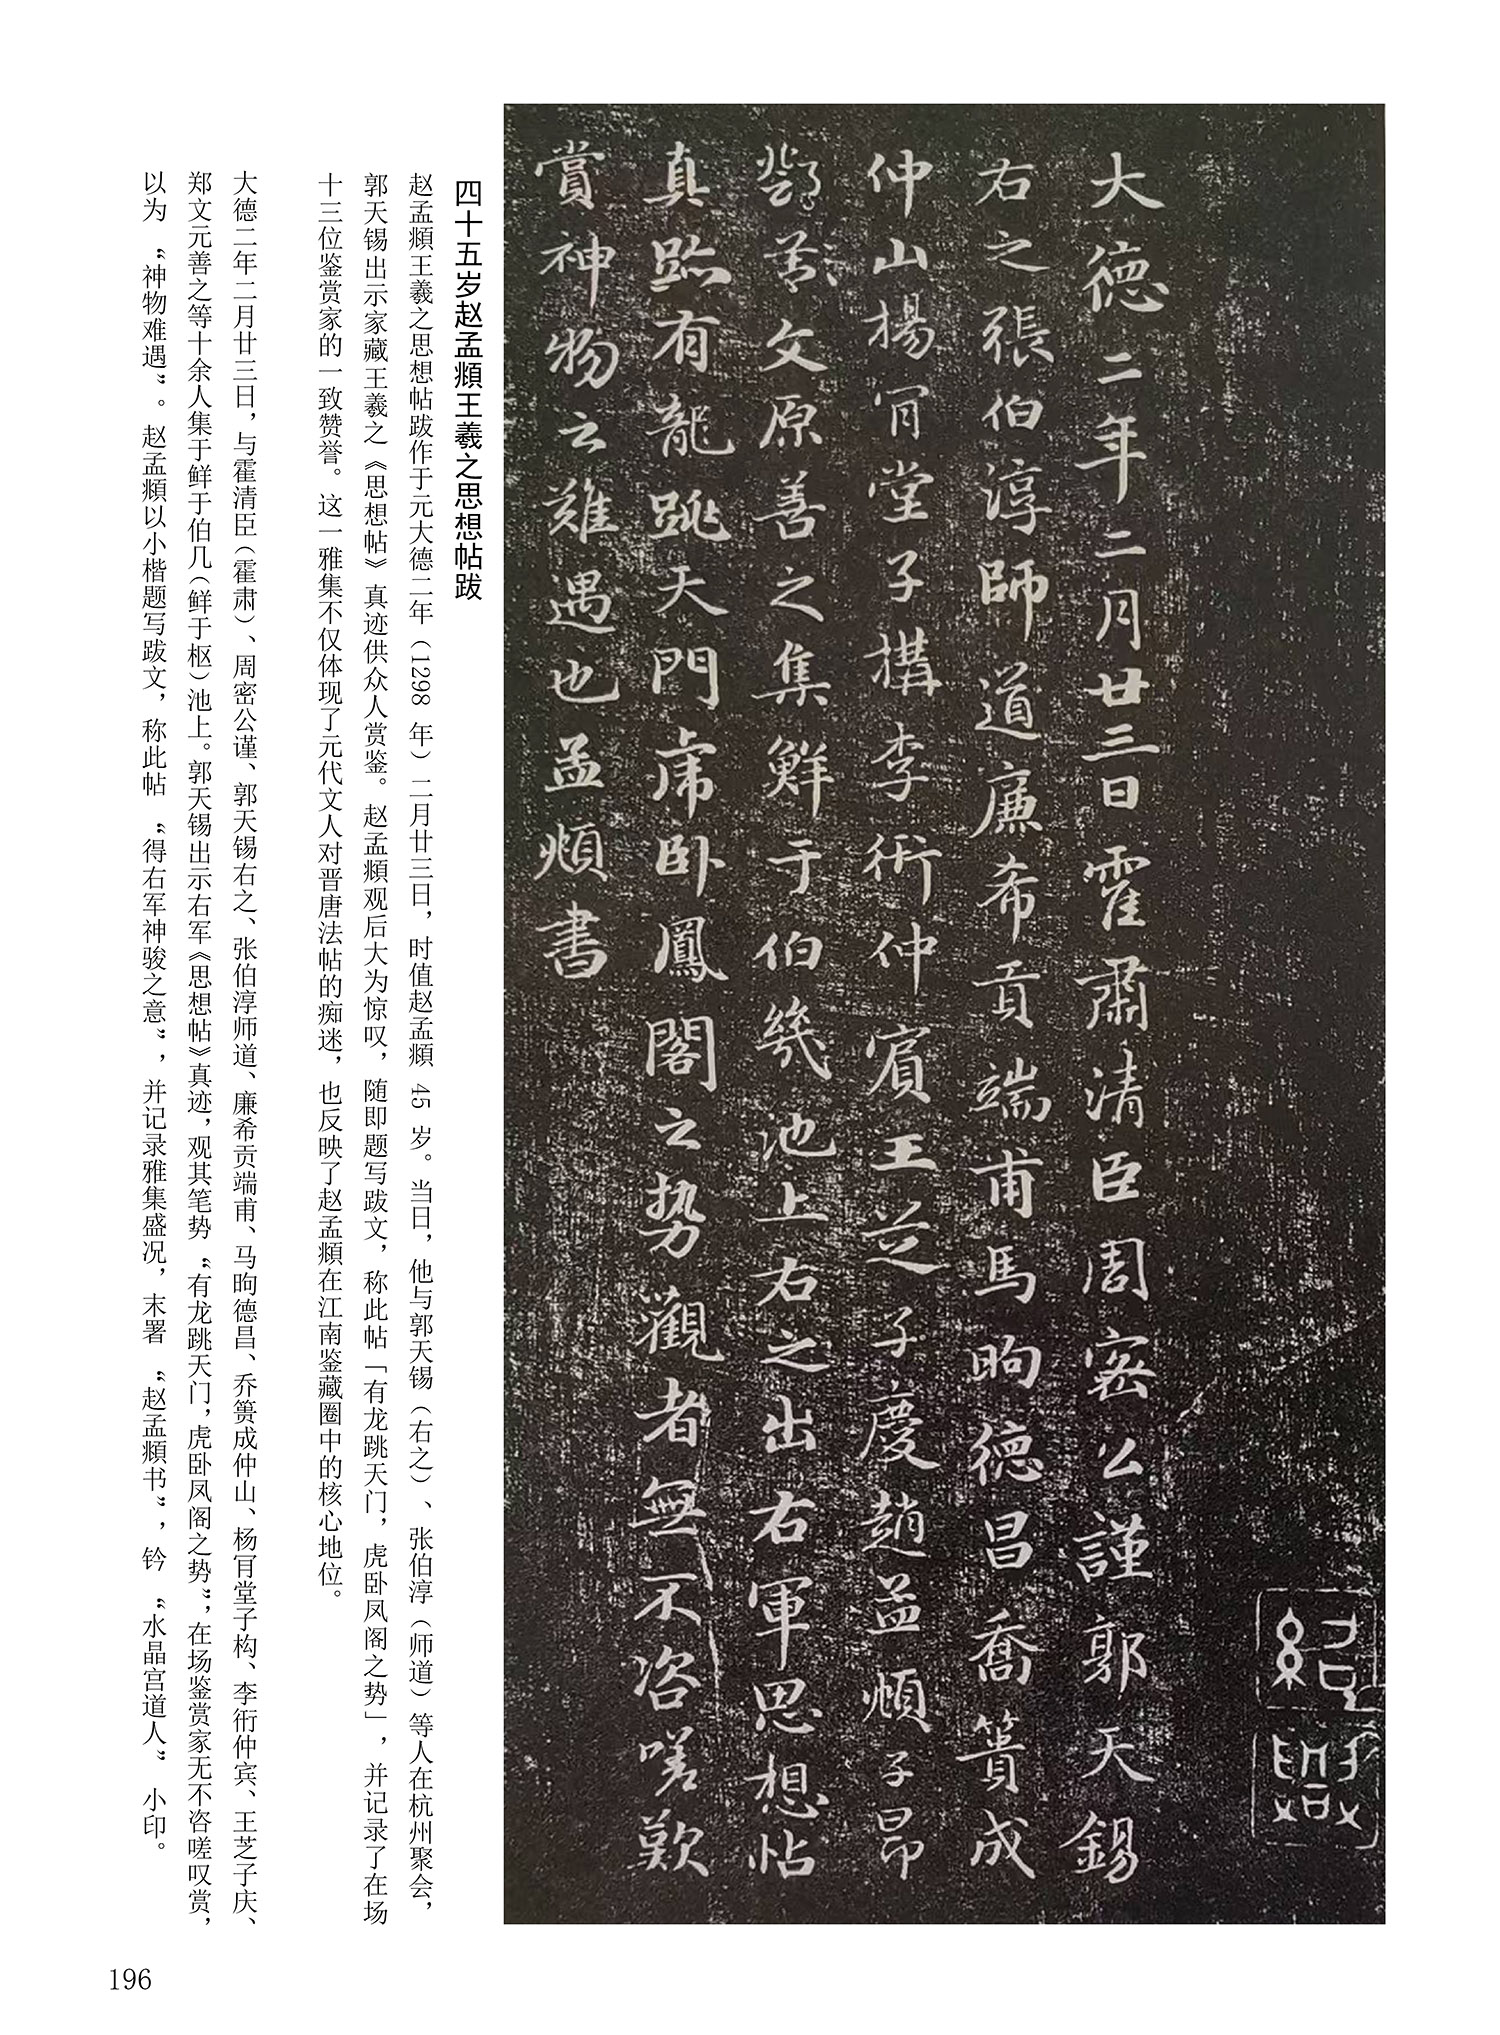 大德二年二月廿三日霍肅清臣周密公謹郭天錫
右之張伯淳師道廉希貢端甫馬昫德昌喬簣成
仲山楊肎堂子構李衎仲賓王芝子慶趙孟頫子昂
鄧善文原善之集鮮于伯幾池上右之出右軍思想帖
真跡有龍跳天門虎卧鳳閣之勢觀者無不咨嗟歎
賞神物云難遇也孟頫書
四十五岁赵孟頫王羲之思想帖跋
赵孟頫王羲之思想帖跋作于元大德二年（1298 年）二月廿三日，时值赵孟頫 45 岁。当日，他与郭天锡（右之）、张伯淳（师道）等人在杭州聚会，
郭天锡出示家藏王羲之《思想帖》真迹供众人赏鉴。赵孟頫观后大为惊叹，随即题写跋文，称此帖「有龙跳天门，虎卧凤阁之势」，并记录了在场
十三位鉴赏家的一致赞誉。这一雅集不仅体现了元代文人对晋唐法帖的痴迷，也反映了赵孟頫在江南鉴藏圈中的核心地位。
大德二年二月廿三日，与霍清臣（霍肃）、周密公谨、郭天锡右之、张伯淳师道、廉希贡端甫、马昫德昌、乔篑成仲山、杨肎堂子构、李衎仲宾、王芝子庆、
郑文元善之等十余人集于鲜于伯几（鲜于枢）池上。郭天锡出示右军《思想帖》真迹，观其笔势“有龙跳天门，虎卧凤阁之势”，在场鉴赏家无不咨嗟叹赏，
以为“神物难遇”。赵孟頫以小楷题写跋文，称此帖“得右军神骏之意”，并记录雅集盛况，末署“赵孟頫书”，钤“水晶宫道人”小印。
196